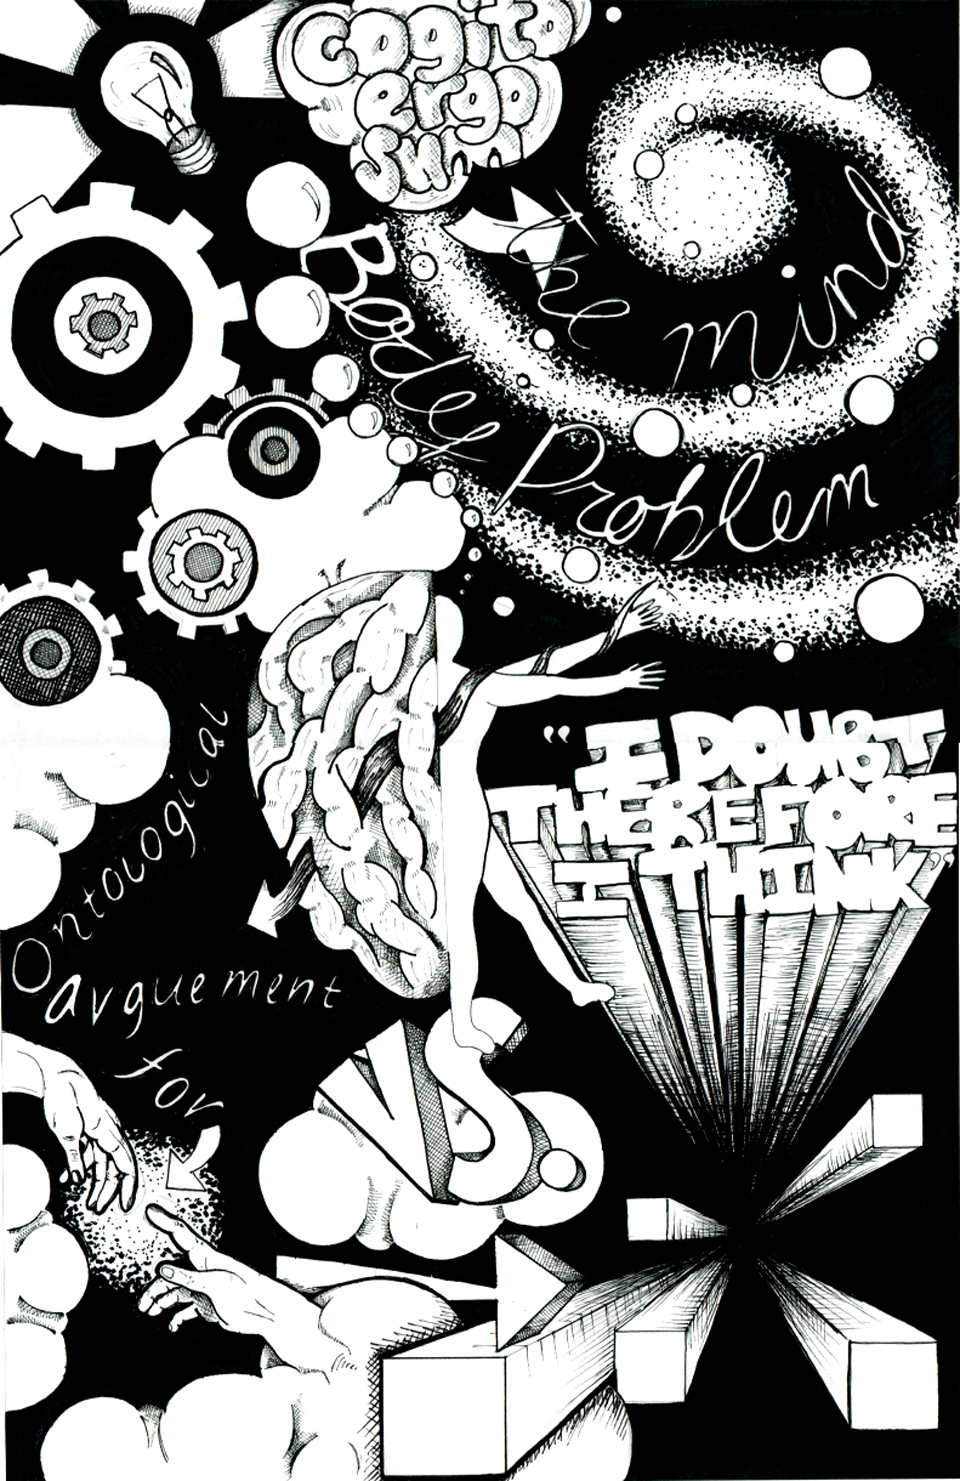 Cogito
ergo
Sum
the mind
Body Problem
"I DOUBT
THEREFORE
I THINK"
Ontological
arguement
for
VS.